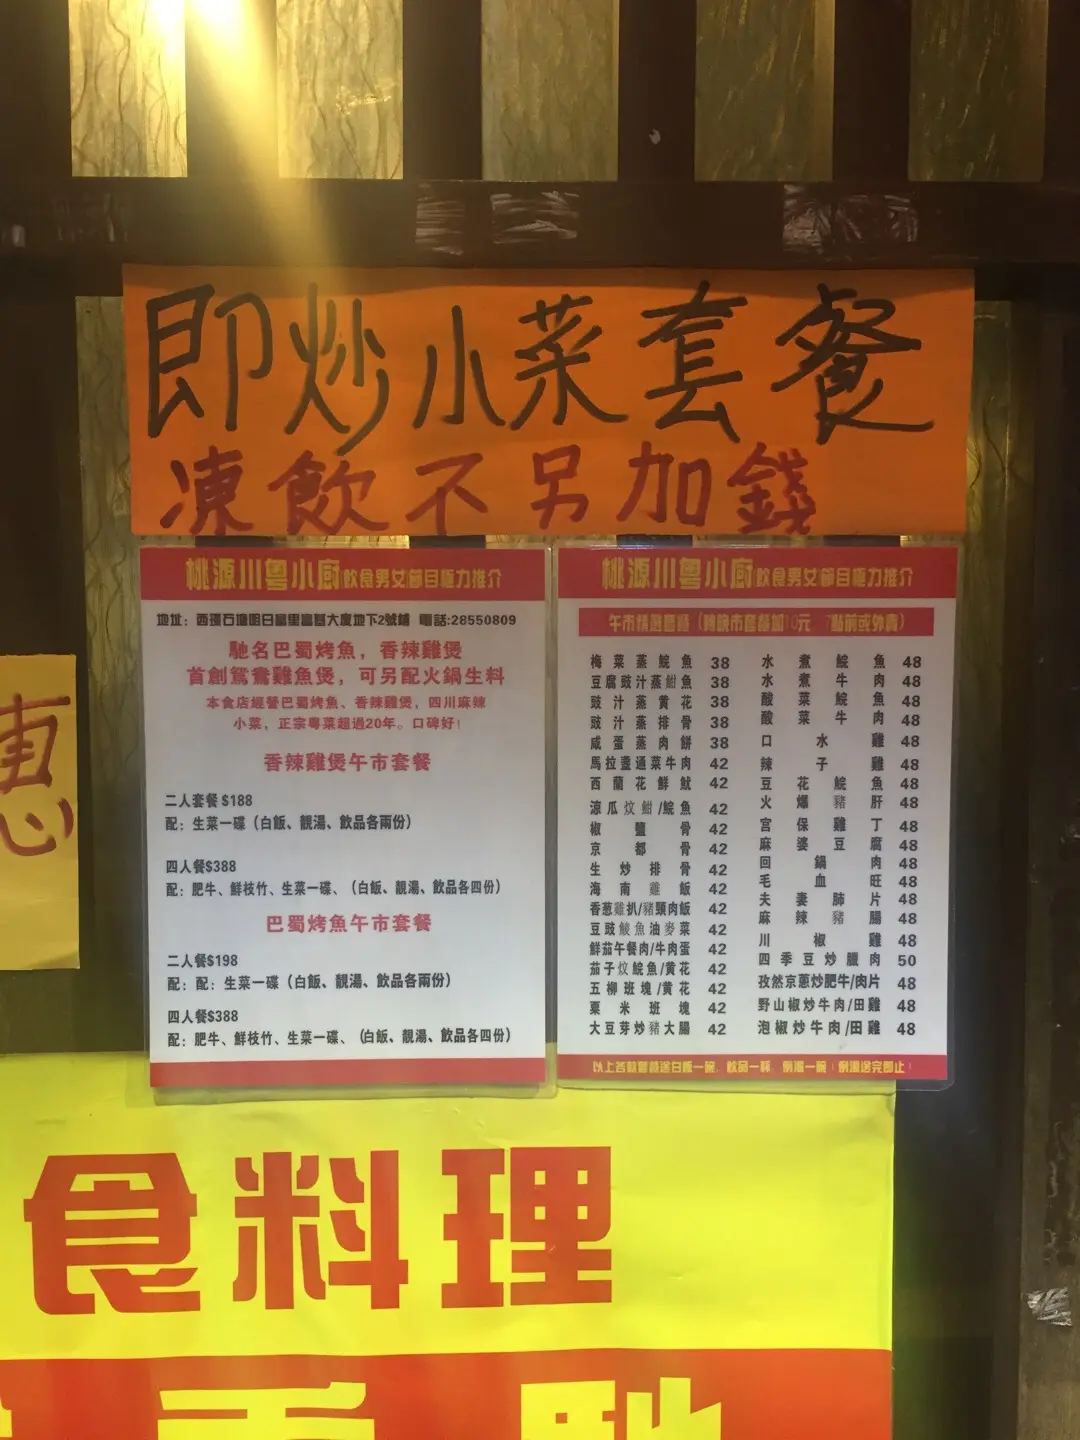 即炒小菜套餐
凍飲不另加錢
惠
桃源川粵小廚飲食男女節目極力推介
地址：西環石塘咀日富里富基大廈地下2號鋪 電話:28550809
馳名巴蜀烤魚，香辣雞煲
首創鴛鴦雞魚煲，可另配火鍋生料
本食店經營巴蜀烤魚、香辣雞煲，四川麻辣
小菜，正宗粵菜超過20年。口碑好！
香辣雞煲午市套餐
二人套餐$188
配：生菜一碟（白飯、靚湯、飲品各兩份）
四人餐$388
配：肥牛、鮮枝竹、生菜一碟、（白飯、靚湯、飲品各四份）
巴蜀烤魚午市套餐
二人餐$198
配：配：生菜一碟（白飯、靚湯、飲品各兩份）
四人餐$388
配：肥牛、鮮枝竹、生菜一碟、（白飯、靚湯、飲品各四份）
桃源川粵小廚飲食男女節目極力推介
午市精選套餐（轉晚市套餐加10元 7點前或外賣）
梅菜蒸鯇魚 38
豆腐豉汁蒸鮒魚 38
豉汁蒸黄花 38
豉汁蒸排骨 38
咸蛋蒸肉餅 38
馬拉盞通菜牛肉 42
西蘭花鮮魷 42
涼瓜炆鮒/鯇魚 42
椒鹽骨 42
京都骨 42
生炒排骨 42
海南雞飯 42
香葱雞扒/豬頸肉飯 42
豆豉鯪魚油麥菜 42
鮮茄午餐肉/牛肉蛋 42
茄子炆鯇魚/黄花 42
五柳班塊/黄花 42
粟米班塊 42
大豆芽炒豬大腸 42
水煮鯇魚 48
水煮牛肉 48
酸菜鯇魚 48
酸菜牛肉 48
口水雞 48
辣子雞 48
豆花鯇魚 48
火爆豬肝 48
宮保雞丁 48
麻婆豆腐 48
回鍋肉 48
毛血旺 48
夫妻肺片 48
麻辣豬腸 48
川椒雞 48
四季豆炒臘肉 50
孜然京蔥炒肥牛/肉片 48
野山椒炒牛肉/田雞 48
泡椒炒牛肉/田雞 48
以上各款套餐送白飯一碗，飲品一杯，例湯一碗（例湯送完即止）
食料理